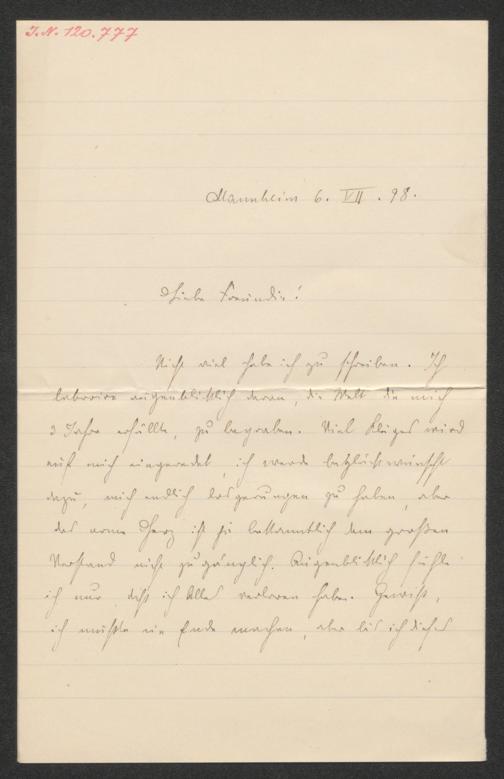 I.N. 120.777
Mannheim 6. VII. 98.
Liebe Freundin!
Nicht viel habe ich zu schreiben. Ich
laboriere augenblicklich daran, die Welt die mich
2 Jahre erfüllte, zu begraben. Viel Kluges wird
auf mich eingeredet, ich werde beglückwünscht
dazu, mich endlich losgerungen zu haben, aber
das arme Herz ist ja bekanntlich dem großen
Verstand nicht zugänglich. Augenblicklich fühle
ich nur, daß ich Alles verloren habe. Gewiß,
ich mußte ein Ende machen, aber bis ich dieses